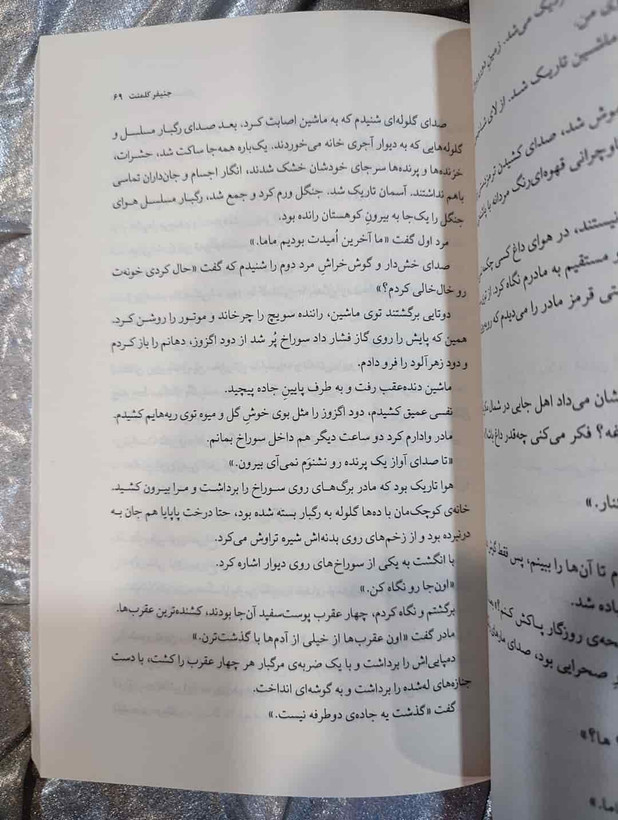 جنیفر کلمنت ۶۹
صدای گلوله‌ای شنیدم که به ماشین اصابت کرد. بعد صدای رگبار مسلسل و
گلوله‌هایی که به دیوار آجری خانه می‌خوردند. یک‌باره همه‌جا ساکت شد، حشرات،
خزنده‌ها و پرنده‌ها سر جای خودشان خشک شدند، انگار اجسام و جان‌داران تماسی
باهم نداشتند. آسمان تاریک شد. جنگل ورم کرد و جمع شد، رگبار مسلسل هوای
جنگل را یک‌جا به بیرونِ کوهستان رانده بود.
مرد اول گفت «ما آخرین اُمیدت بودیم ماما.»
صدای خش‌دار و گوش‌خراشِ مرد دوم را شنیدم که گفت «حال کردی خونه‌ت
رو خال‌خالی کردم؟»
دوتایی برگشتند توی ماشین، راننده سویچ را چرخاند و موتور را روشن کرد.
همین که پایش را روی گاز فشار داد سوراخ پُر شد از دود اگزوز، دهانم را باز کردم
و دود زهرآلود را فرو دادم.
ماشین دنده‌عقب رفت و به طرف پایین جاده پیچید.
نفسی عمیق کشیدم، دود اگزوز را مثل بوی خوشِ گل و میوه توی ریه‌هایم کشیدم.
مادر وادارم کرد دو ساعت دیگر هم داخل سوراخ بمانم.
«تا صدای آواز یک پرنده رو نشنوَم نمی‌آی بیرون.»
هوا تاریک بود که مادر برگ‌های روی سوراخ را برداشت و مرا بیرون کشید.
خانه‌ی کوچک‌مان با ده‌ها گلوله به رگبار بسته شده بود، حتا درخت پاپایا هم جان به
درنبرده بود و از زخم‌های روی بدنه‌اش شیره تراوش می‌کرد.
با انگشت به یکی از سوراخ‌های روی دیوار اشاره کرد.
«اون‌جا رو نگاه کن.»
برگشتم و نگاه کردم، چهار عقرب پوست‌سفید آن‌جا بودند، کشنده‌ترین عقرب‌ها.
مادر گفت «اون عقرب‌ها از خیلی از آدم‌ها با گذشت‌ترن.»
دمپایی‌اش را برداشت و با یک ضربه‌ی مرگبار هر چهار عقرب را کشت، با دست
جنازه‌های له‌شده را برداشت و به گوشه‌ای انداخت.
گفت «گذشت یه جاده‌ی دوطرفه نیست.»
ماشین تاریک شد. از لای
صدای کشیدن ترمز
قهوه‌ای‌رنگ مردانه
نیستند، در هوای داغ کسی
و مستقیم به مادرم نگاه کرد. از
قرمز مادر را می‌دیدم که
می‌داد اهل جایی در شمال
فکر می‌کنی چه‌قدر داغ
تا آن‌ها را ببینم، پس فقط
شد.
روزگار پاکش کنم؟»
صحرایی بود، صدای
ها؟»